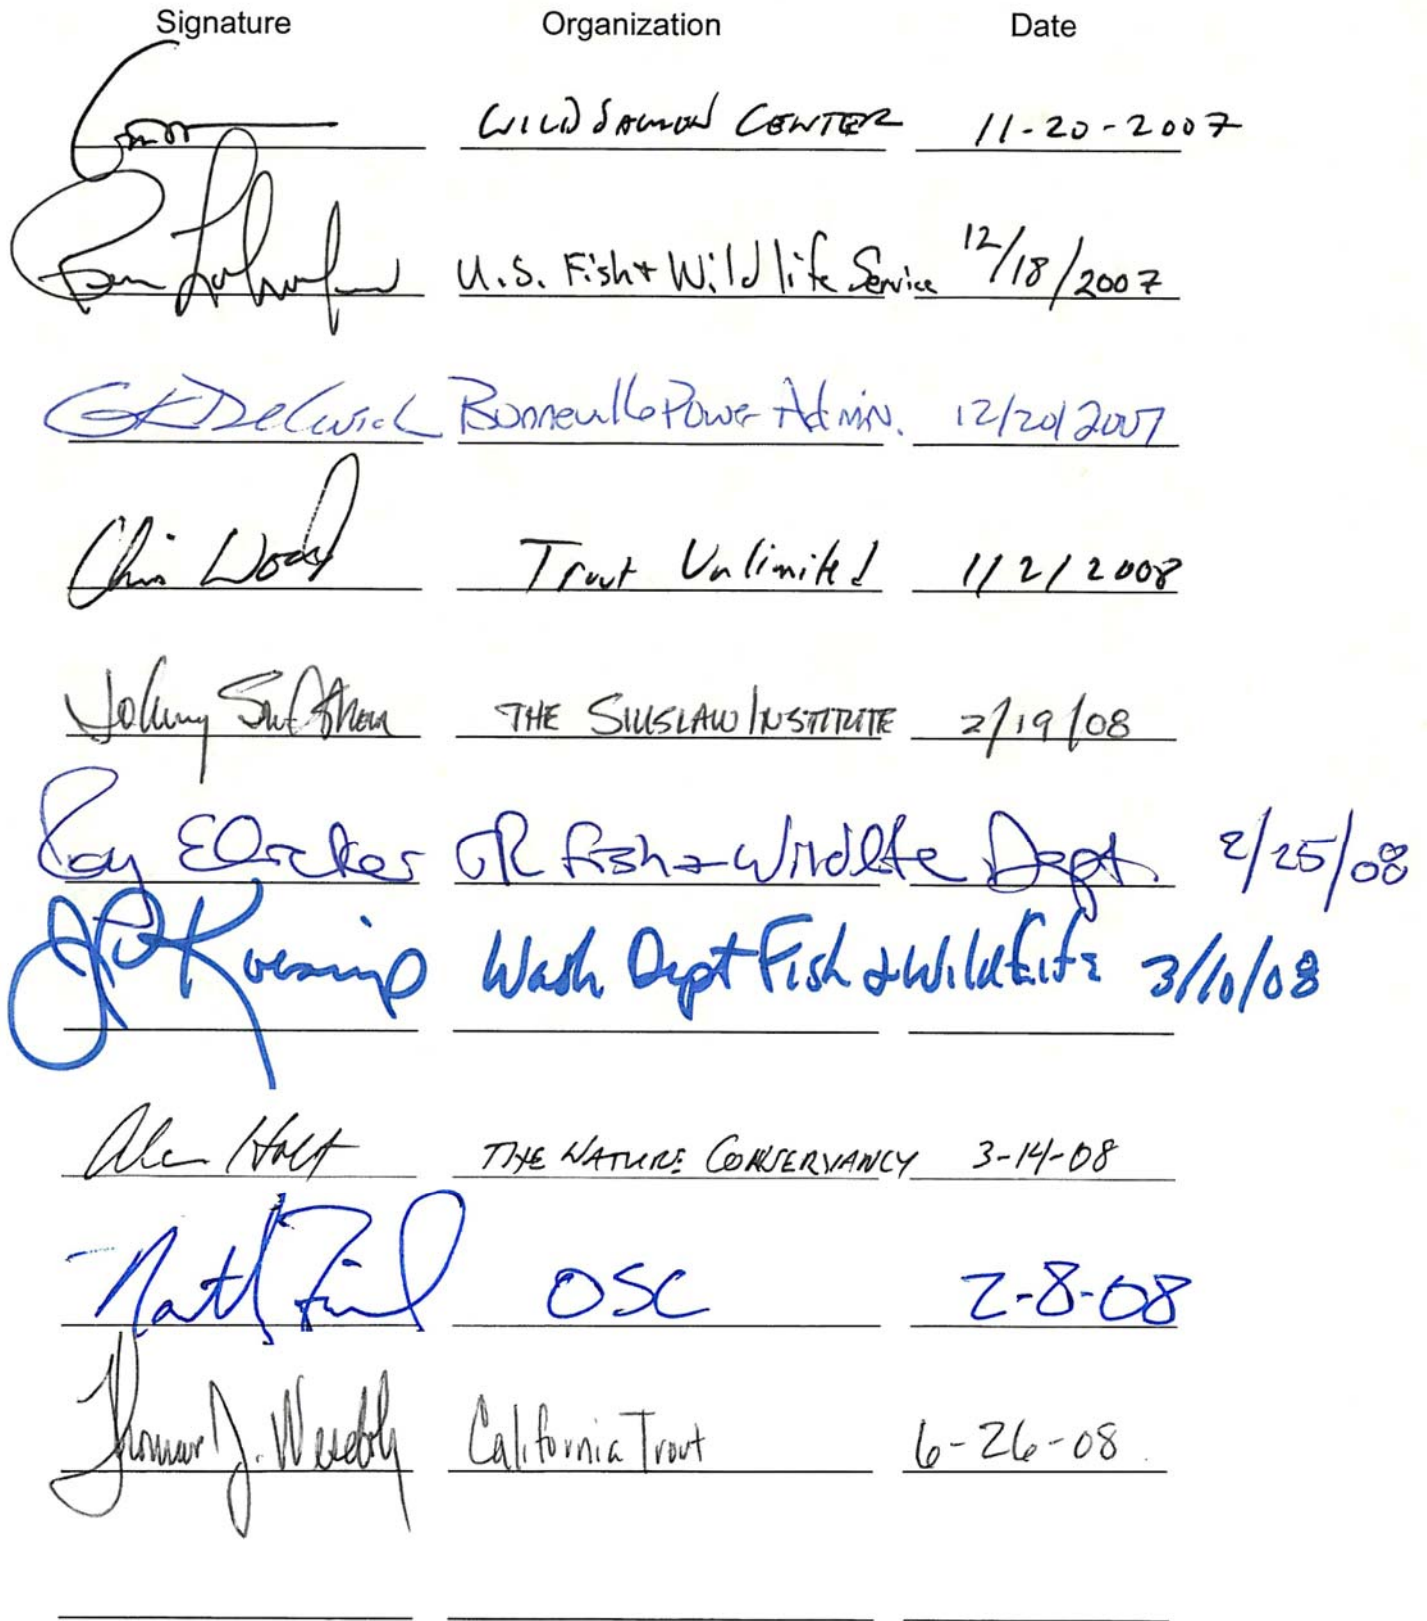 Signature Organization Date
WILD SALMON CENTER 11-20-2007
U.S. Fish + Wildlife Service 12/18/2007
Bonneville Power Admin. 12/20/2007
Chris Wood Trout Unlimited 1/2/2008
Johnny THE SIUSLAW INSTITUTE 2/19/08
Roy Elicker OR Fish + Wildlife Dept. 2/25/08
Wash Dept Fish & Wildlife 3/10/08
Alan Holt THE NATURE CONSERVANCY 3-14-08
OSC 2-8-08
Thomas J. California Trout 6-26-08